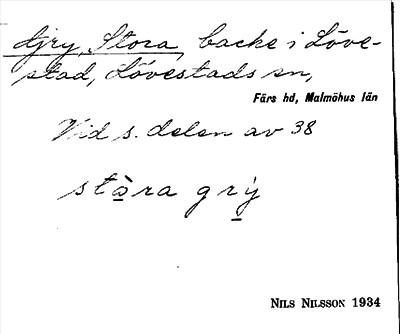 Gry, Stora, backe i Löve-
stad, Lövestads sn,
Färs hd, Malmöhus län
Vid s. delen av 38
stò̱ra grý̱
NILS NILSSON 1934